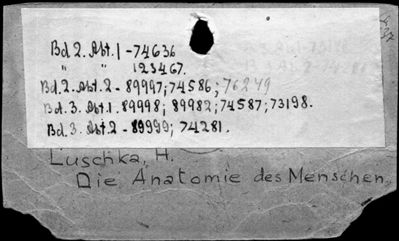 Bd. 2. Abt. 1 - 74636
" " 123467.
Bd. 2. Abt. 2 - 89997; 74586; 76249
Bd. 3. Abt. 1. 89998; 89982; 74587; 73198.
Bd. 3. Abt. 2 - 89999; 74281.
Luschka, H.
Die Anatomie des Menschen.